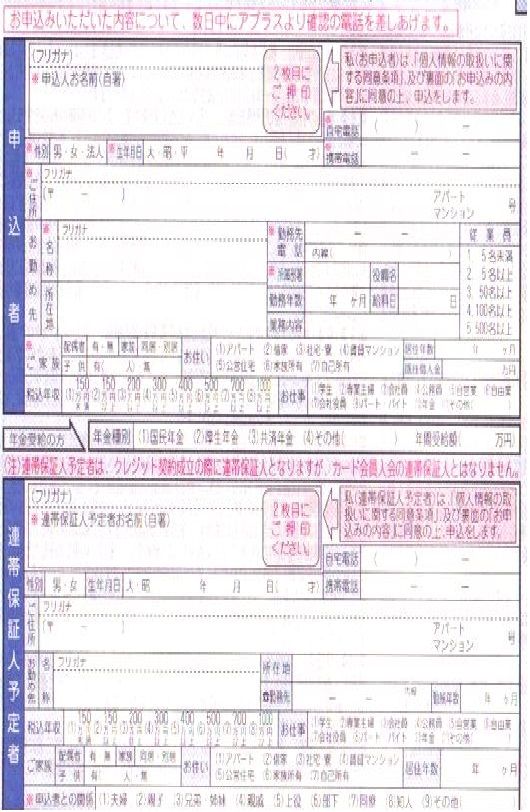 お申込みいただいた内容について、数日中にアプラスより確認の電話を差しあげます。
申込者
(フリガナ)
※申込人お名前(自署)
2枚目にご押印ください。
私(お申込者)は、「個人情報の取扱いに関する同意条項」及び裏面の「お申込みの内容」に同意の上、申込をします。
※自宅電話 ( ) ー
※携帯電話 ー ー
※性別 男・女・法人 ※生年月日 大・昭・平 年 月 日( 才)
※ご住所
フリガナ
(〒 ー )
アパート
マンション 号
お勤め先
※名称
フリガナ
所在地
※勤務先電話 ー ー
内線( )
※所属部署 役職名
勤務年数 年 ヶ月 給料日 日
業務内容
従業員
1. 5名未満
2. 5名以上
3. 50名以上
4. 100名以上
5. 500名以上
※ご家族
配偶者 有・無 家族 同居・別居
子供 有( 人)・無
お住い (1)アパート (2)借家 (3)社宅・寮 (4)賃貸マンション
(5)公営住宅 (6)家族所有 (7)自己所有
居住年数 年 ヶ月
既住借入金 万円
税込年収 150 150 200 300 400 500 700 1000
お仕事 1学生 2専業主婦 3会社員 4公務員 5自営業 6自由業
7会社役員 8パート・バイト 9年金 (その他( )
年金受給の方 年金種別 (1)国民年金 (2)厚生年金 (3)共済年金 (4)その他( ) 年間受給額( 万円)
(注)連帯保証人予定者は、クレジット契約成立の際に連帯保証人となりますが、カード会員入会の連帯保証人とはなりません。
連帯保証人予定者
(フリガナ)
※連帯保証人予定者お名前(自署)
2枚目にご押印ください。
私(連帯保証人予定者)は、「個人情報の取扱いに関する同意条項」及び裏面の「お申込みの内容」に同意の上、申込をします。
自宅電話 ( ) ー
性別 男・女 生年月日 大・昭 年 月 日( 才) 携帯電話 ー ー
ご住所
フリガナ
(〒 ー )
アパート
マンション 号
お勤め先
名称
フリガナ
所在地
☎勤務先 ー ー 内線 勤務年数 年 ヶ月
税込年収 150 150 200 300 400 500 700 1000
お仕事 1学生 2専業主婦 3会社員 4公務員 5自営業 6自由業
7会社役員 8パート・バイト 9年金 (その他( )
ご家族
配偶者 有・無 家族 同居・別居
子供 有( 人)・無
お住い (1)アパート (2)借家 (3)社宅・寮 (4)賃貸マンション
(5)公営住宅 (6)家族所有 (7)自己所有
居住年数 年 ヶ月
※申込者との関係 (1)夫婦 (2)親子 (3)兄弟・姉妹 (4)親戚 (5)上役 (6)部下 (7)同僚 (8)知人 (9)その他( )